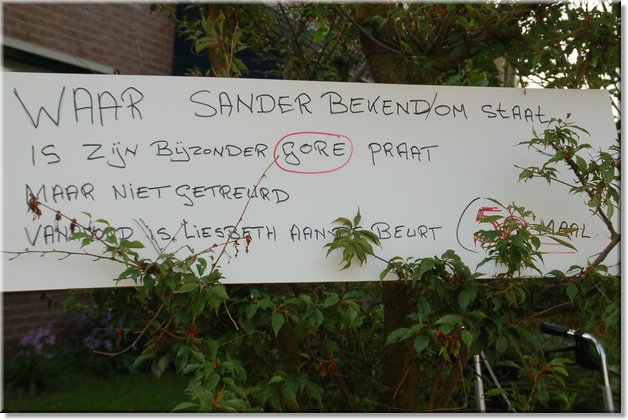 WAAR SANDER BEKEND/OM STAAT
IS ZijN BijZONDER GORE PRAAT
MAAR NIET GETREURD
IS LIESBETH AAN BEURT MAAL